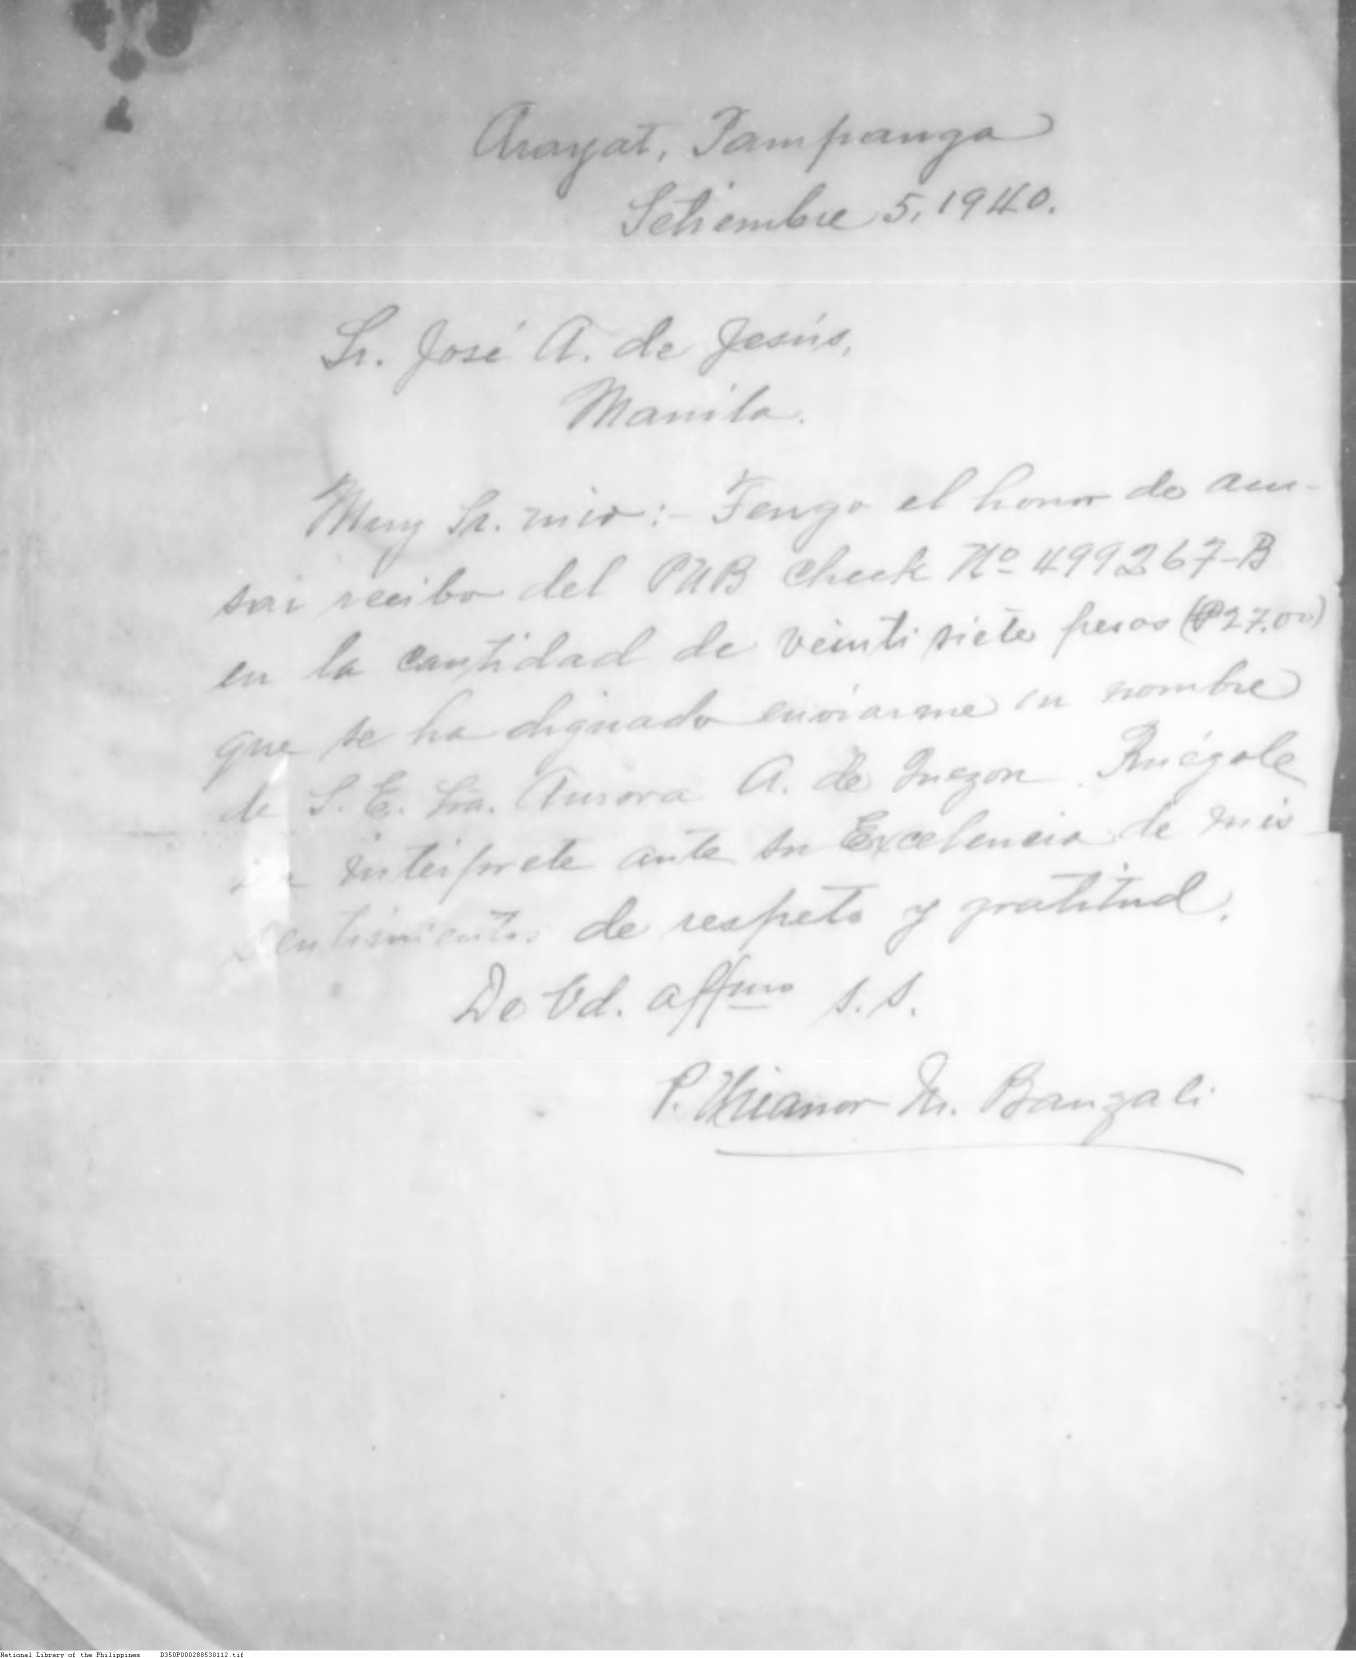 Arayat, Pampanga
Setiembre 5, 1940.
Sr. José A. de Jesús,
Manila.
Muy Sr. mio:- Tengo el honor de acu-
sar recibo del PNB Check Nº 499267-B
en la cantidad de veintisiete pesos (₱27.00)
que se ha dignado enviarme en nombre
de S. E. Sra. Aurora A. de Quezon. Ruégole
interprete ante su Excelencia de mis
sentimientos de respeto y gratitud.
De Vd. affmo s.s.
P. Nicanor M. Banzali
National Library of the Philippines D350P000288530112.tif